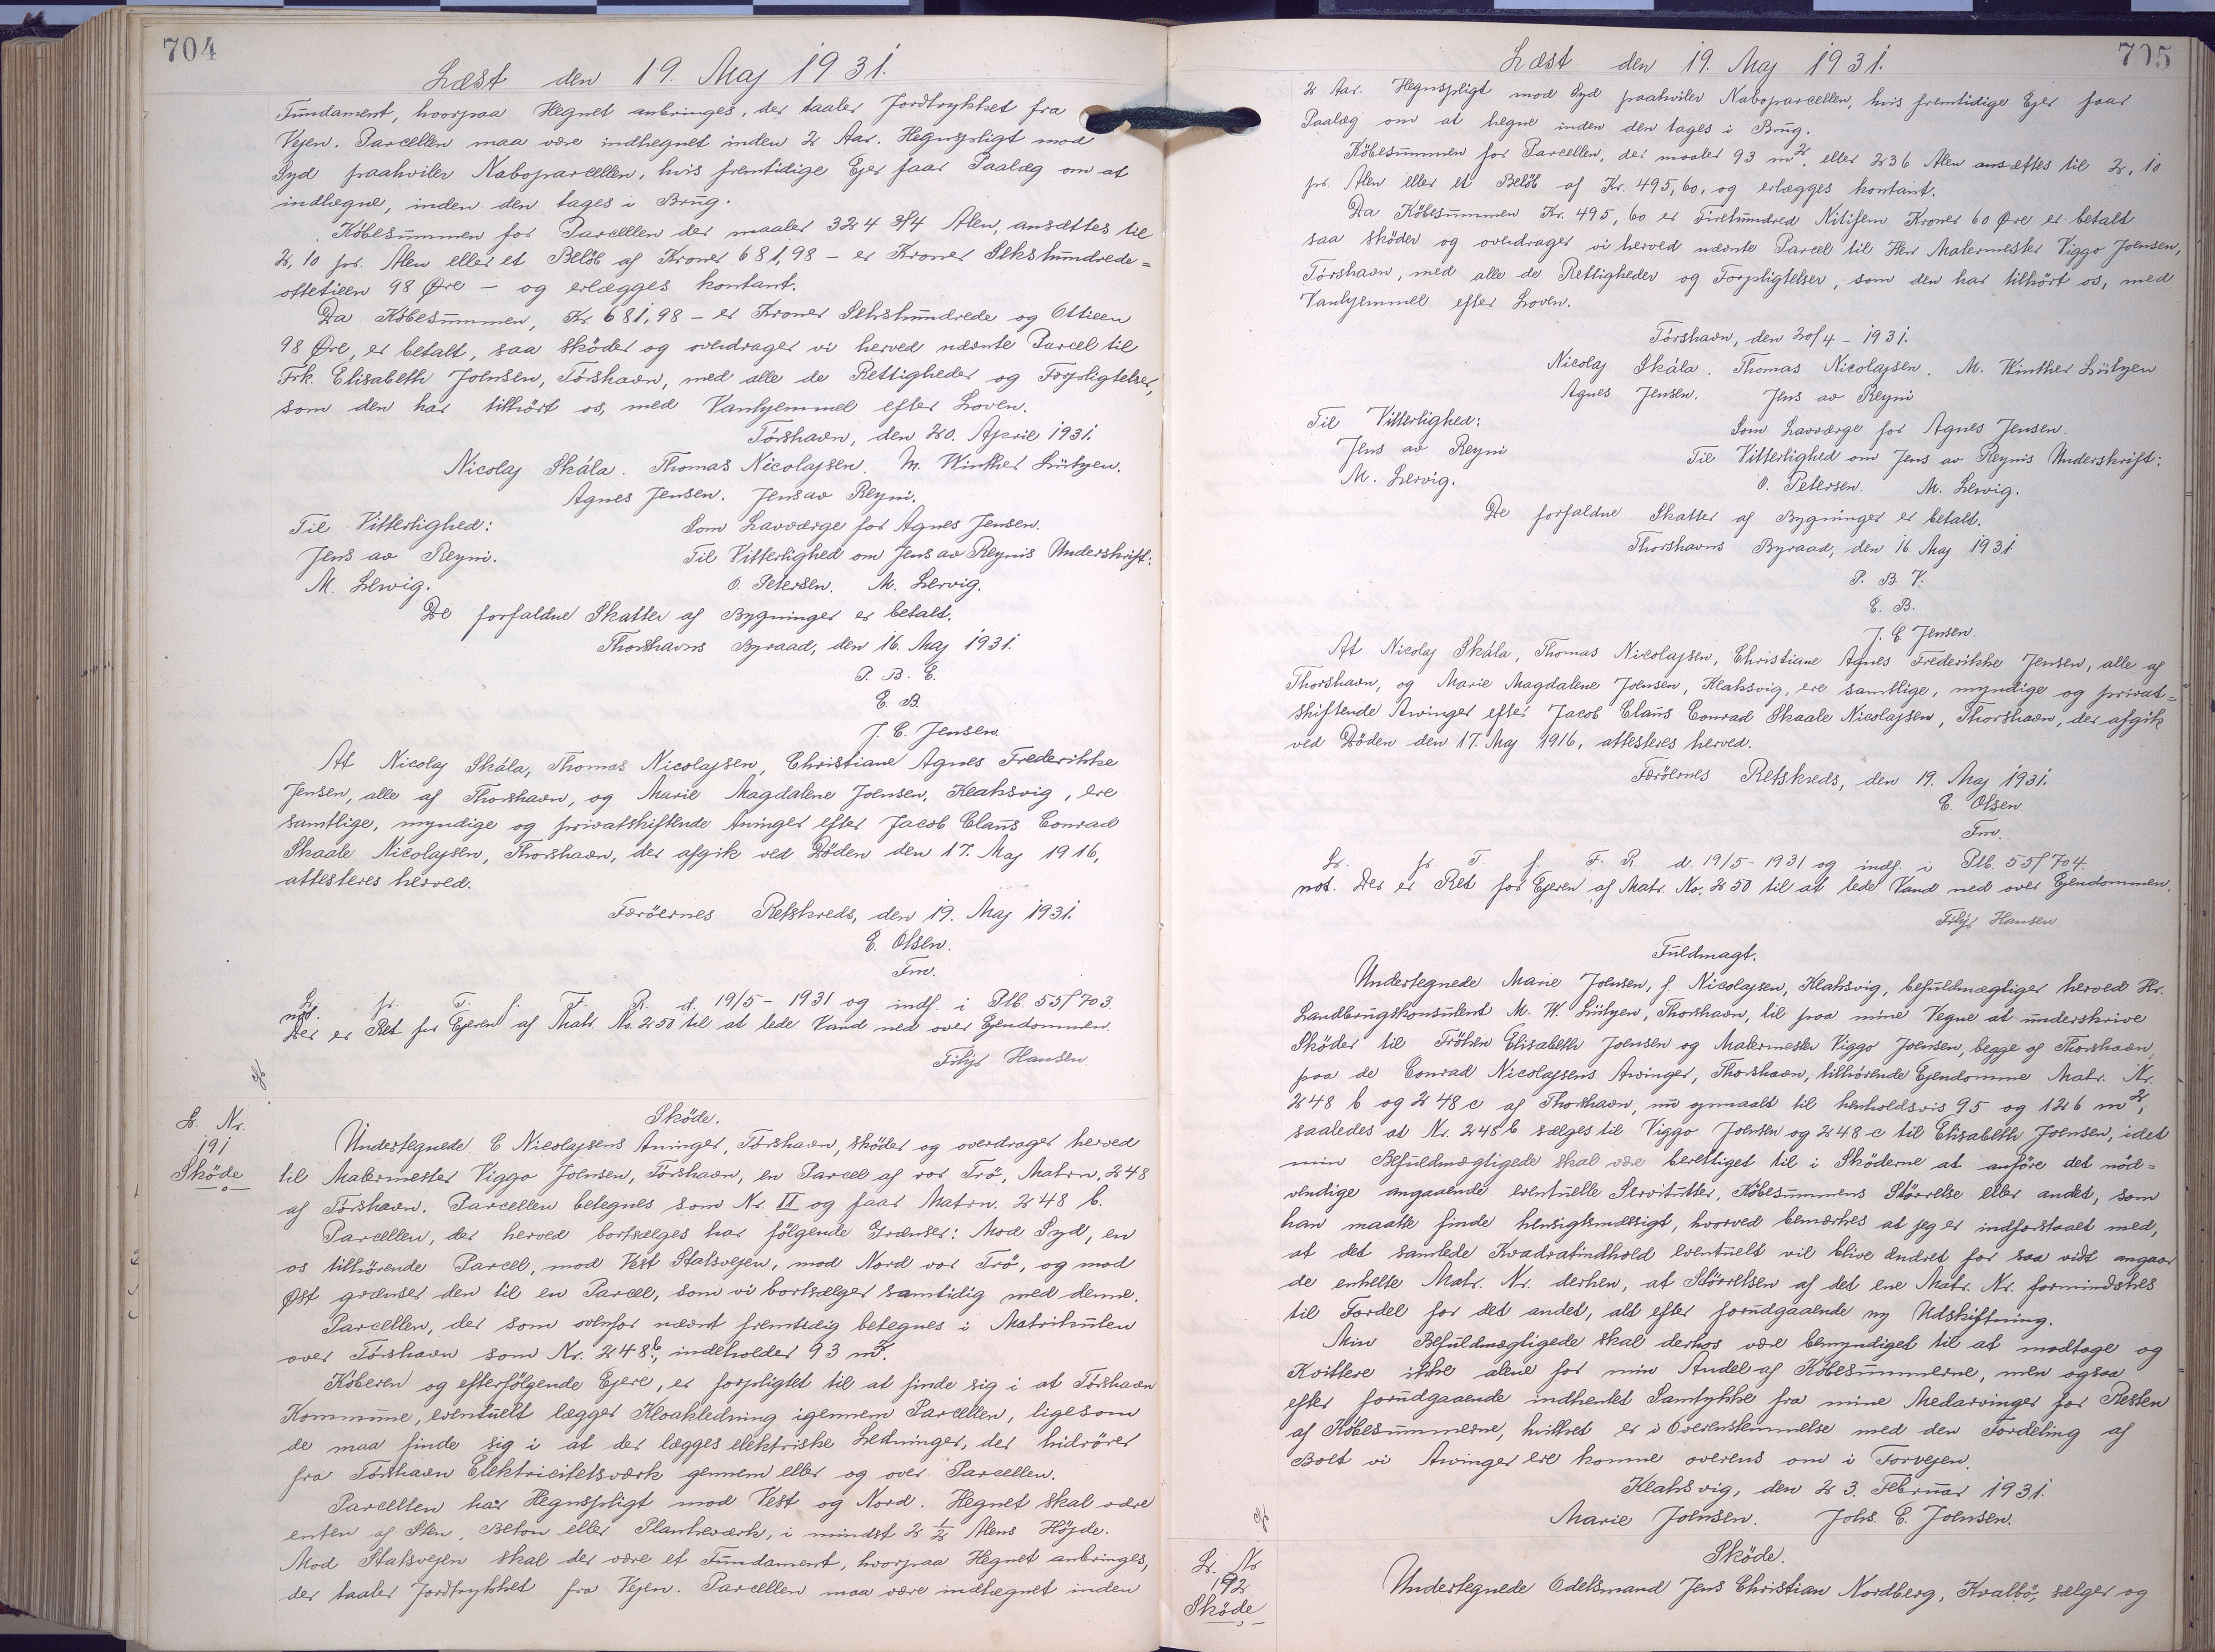 704
Læst den 19. Maj 1931.
Fundament, hvorpaa Hegnet anbringes, der taaler Jordtrykket fra
Vejen. Parcellen maa være indhegnet inden 2 Aar. Hegnspligt mod
Syd paahviler Naboparcellen, hvis fremtidige Ejer faar Paalæg om at
indhegne, inden den tages i Brug.
Købesummen for Parcellen der maaler 324 3/4 Alen, ansættes til
2,10 pr. Alen eller et Beløb af Kroner 681,98 - er Kroner Sekshundrede=
ottetieen 98 Øre - og erlægges kontant.
Da Købesummen, Kr. 681,98 - er Kroner Sekshundrede og Ottieen
98 Øre, er betalt, saa skøder og overdrager vi herved nævnte Parcel til
Frk. Elisabeth Joensen, Tórshavn, med alle de Rettigheder og Forpligtelser,
som den har tilhört os, med Vanhjemmel efter Loven.
Tórshavn, den 20. April 1931.
Nicolaj Skála. Thomas Nicolajsen. M. Winther Lützen.
Agnes Jensen. Jens av Reyni.
Til Vitterlighed: Som Lavværge for Agnes Jensen.
Jens av Reyni. Til Vitterlighed om Jens av Reynis Underskrift:
M. Lervig. O. Petersen. M. Lervig.
De forfaldne Skatter af Bygninger er betalt.
Thorshavns Byraad, den 16. Maj 1931.
P. B. E.
E. B.
J. E. Jensen.
At Nicolaj Skála, Thomas Nicolajsen, Christiane Agnes Frederikke
Jensen, alle af Thorshavn, og Marie Magdalene Joensen, Klaksvig, ere
samtlige, myndige og privatskiftende Arvinger efter Jacob Claus Conrad
Skaale Nicolajsen, Thorshavn, der afgik ved Döden den 17. Maj 1916,
attesteres herved.
Færöernes Retskreds, den 19. Maj 1931.
E. Olsen.
Fm.
Lr. fr. T. f. F. R. d. 19/5 - 1931 og indf. i Plb. 55f 703.
not. Der er Ret for Ejeren af Matr. No. 250 til at lede Vand ned over Ejendommen.
Filip Hansen
L. Nr.
191
Sköde
Sköde.
Undertegnede C Nicolajsens Arvinger, Tórshavn, sköder og overdrager herved
til Malermester Viggo Joensen, Tórshavn, en Parcel af vor Trö, Matrn. 248
af Tórshavn. Parcellen betegnes som Nr. II og faar Matrn. 248 b.
Parcellen, der herved bortsælges har fölgende Grænser: Mod Syd, en
os tilhörende Parcel, mod Vest Statsvejen, mod Nord vor Trö, og mod
Øst grænser den til en Parcel, som vi bortsælger samtidig med denne.
Parcellen, der som ovenfor nævnt fremtidig betegnes i Matrikulen
over Tórshavn som Nr. 248 b, indeholder 93 m².
Köberen og efterfölgende Ejere, er forpligtet til at finde sig i at Tórshavn
Kommune, eventuelt lægger Kloakledning igennem Parcellen, ligesom
de maa finde sig i at der lægges elektriske Ledninger, der hidrörer
fra Tórshavn Elektricitetsværk gennem eller og over Parcellen.
Parcellen har Hegnspligt mod Vest og Nord. Hegnet skal være
enten af Sten, Beton eller Plankeværk, i mindst 2 1/2 Alens Höjde.
Mod Statsvejen skal der være et Fundament, hvorpaa Hegnet anbringes,
der taaler Jordtrykket fra Vejen. Parcellen maa være indhegnet inden
705
Læst den 19. Maj 1931.
2 Aar. Hegnspligt mod Syd paahviler Naboparcellen, hvis fremtidige Ejer faar
Paalæg om at hegne inden den tages i Brug.
Köbesummen for Parcellen, der maaler 93 m², eller 236 Alen ansættes til 2,10
pr. Alen eller et Belöb af Kr. 495,60, og erlægges kontant.
Da Köbesummen Kr. 495,60 er Firehundred Nitifem Kroner 60 Øre er betalt
saa sköder og overdrager vi herved nævnte Parcel til Herr Malermester Viggo Joensen,
Tórshavn, med alle de Rettigheder og Forpligtelser, som den har tilhört os, med
Vanhjemmel efter Loven.
Tórshavn, den 20/4 - 1931.
Nicolaj Skála. Thomas Nicolajsen. M. Winther Lützen
Agnes Jensen. Jens av Reyni
Til Vitterlighed: Som Lavværge for Agnes Jensen.
Jens av Reyni Til Vitterlighed om Jens av Reynis Underskrift:
M. Lervig. O. Petersen. M. Lervig.
De forfaldne Skatter af Bygninger er betalt.
Thorshavns Byraad, den 16 Maj 1931
P. B. V.
E. B.
J. E. Jensen.
At Nicolaj Skála, Thomas Nicolajsen, Christiane Agnes Frederikke Jensen, alle af
Thorshavn, og Marie Magdalene Joensen, Klaksvig, ere samtlige, myndige og privat=
skiftende Arvinger efter Jacob Claus Conrad Skaale Nicolajsen, Thorshavn, der afgik
ved Döden den 17. Maj 1916, attesteres herved.
Færöernes Retskreds, den 19. Maj 1931.
E. Olsen
Fm.
Lr. fr. T. f. F. R. d. 19/5 - 1931 og indf. i Plb. 55f 704.
not. Der er Ret for Ejeren af Matr. No. 250 til at lede Vand ned over Ejendommen.
Filip Hansen
Fuldmagt.
Undertegnede Marie Joensen, f. Nicolajsen, Klaksvig, befuldmægtiger herved Hr.
Landbrugskonsulent M. W. Lützen, Thorshavn, til paa mine Vegne at underskrive
Sköder til Fröken Elisabeth Joensen og Malermester Viggo Joensen, begge af Thorshavn,
paa de Conrad Nicolajsens Arvinger, Thorshavn, tilhörende Ejendomme Matr. Nr.
248 b og 248 c af Thorshavn, nu opmaalt til henholdsvis 95 og 126 m²,
saaledes at Nr. 248 b sælges til Viggo Joensen og 248 c til Elisabeth Joensen, idet
min Befuldmægtigede skal være berettiget til i Sköderne at anföre det nöd=
vendige angaaende eventuelle Servitutter, Köbesummens Störrelse eller andet, som
han maatte finde hensigtsmæssigt, hvorved bemærkes at jeg er indforstaaet med,
at det samlede Kvadratindhold eventuelt vil blive ændret for saa vidt angaar
de enkelte Matr. Nr. derhen, at Störrelsen af det ene Matr. Nr. formindskes
til Fordel for det andet, alt efter forudgaaende ny Udskiftning.
Min Befuldmægtigede skal derhos være bemyndiget til at modtage og
Kvittere ikke alene for min Andel af Köbesummerne, men ogsaa
efter forudgaaende indhentet Samtykke fra mine Medarvinger for Resten
af Köbesummerne, hvilket er i Overensstemmelse med den Fordeling af
Boet vi Arvinger ere komne overens om i Forvejen.
Klaksvig, den 23. Februar 1931.
Marie Joensen. Johs. E. Joensen.
L. Nr
192
Sköde
Sköde.
Undertegnede Odelsmand Jens Christian Nordberg, Kvalbö, sælger og